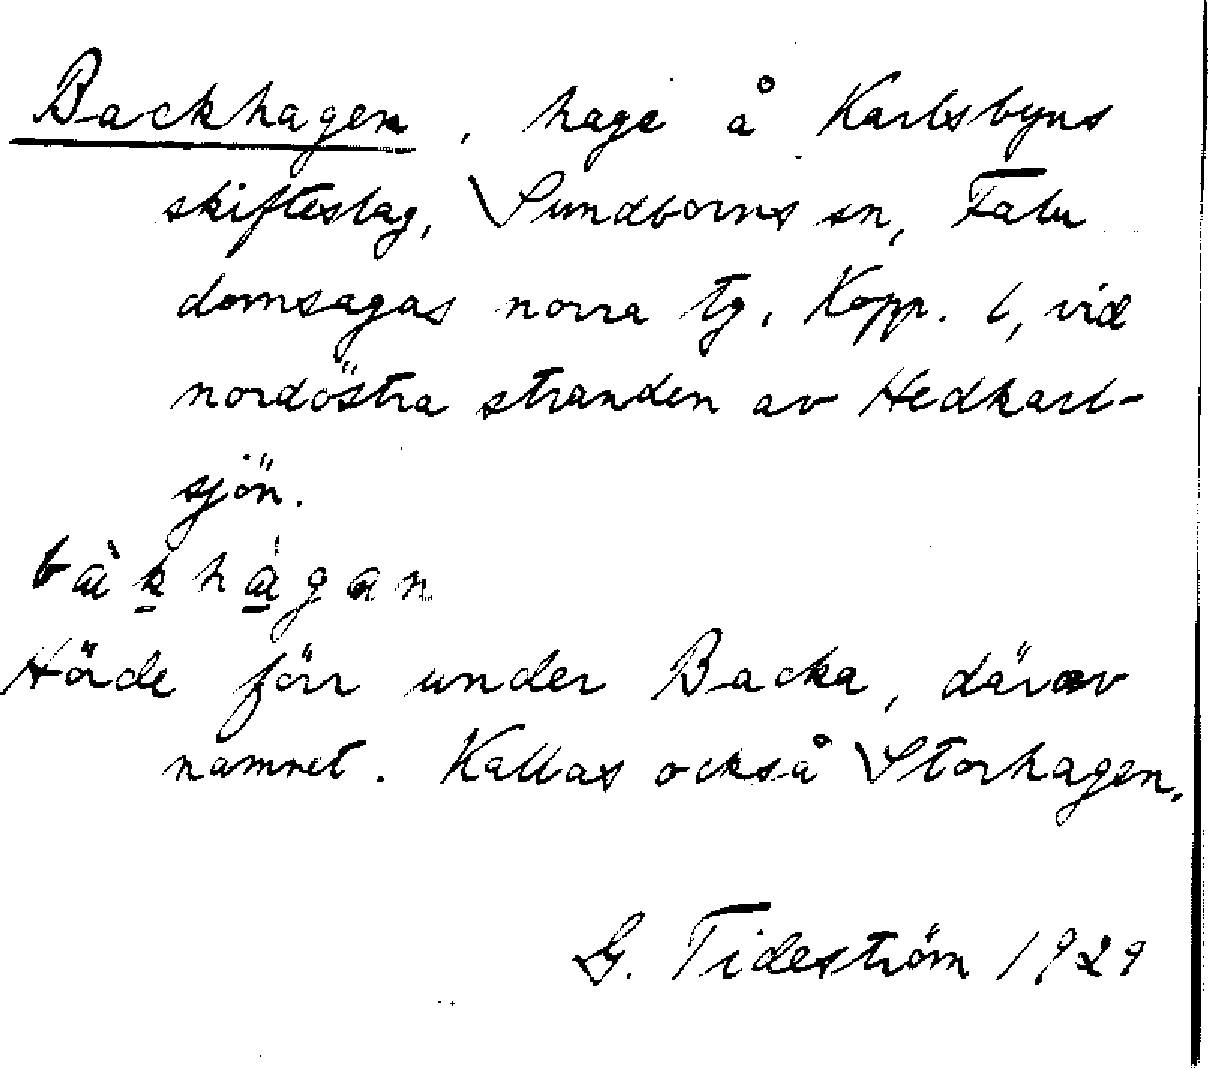 Backhagen, hage å Karlsbyns
skifteslag, Sundborns sn, Falu
domsagas norra tg. Kopp. l, vid
nordöstra stranden av Hedkarl-
sjön.
bàkhágan
Hörde förr under Backa, därav
namnet. Kallas också Storhagen.
G. Tideström 1929